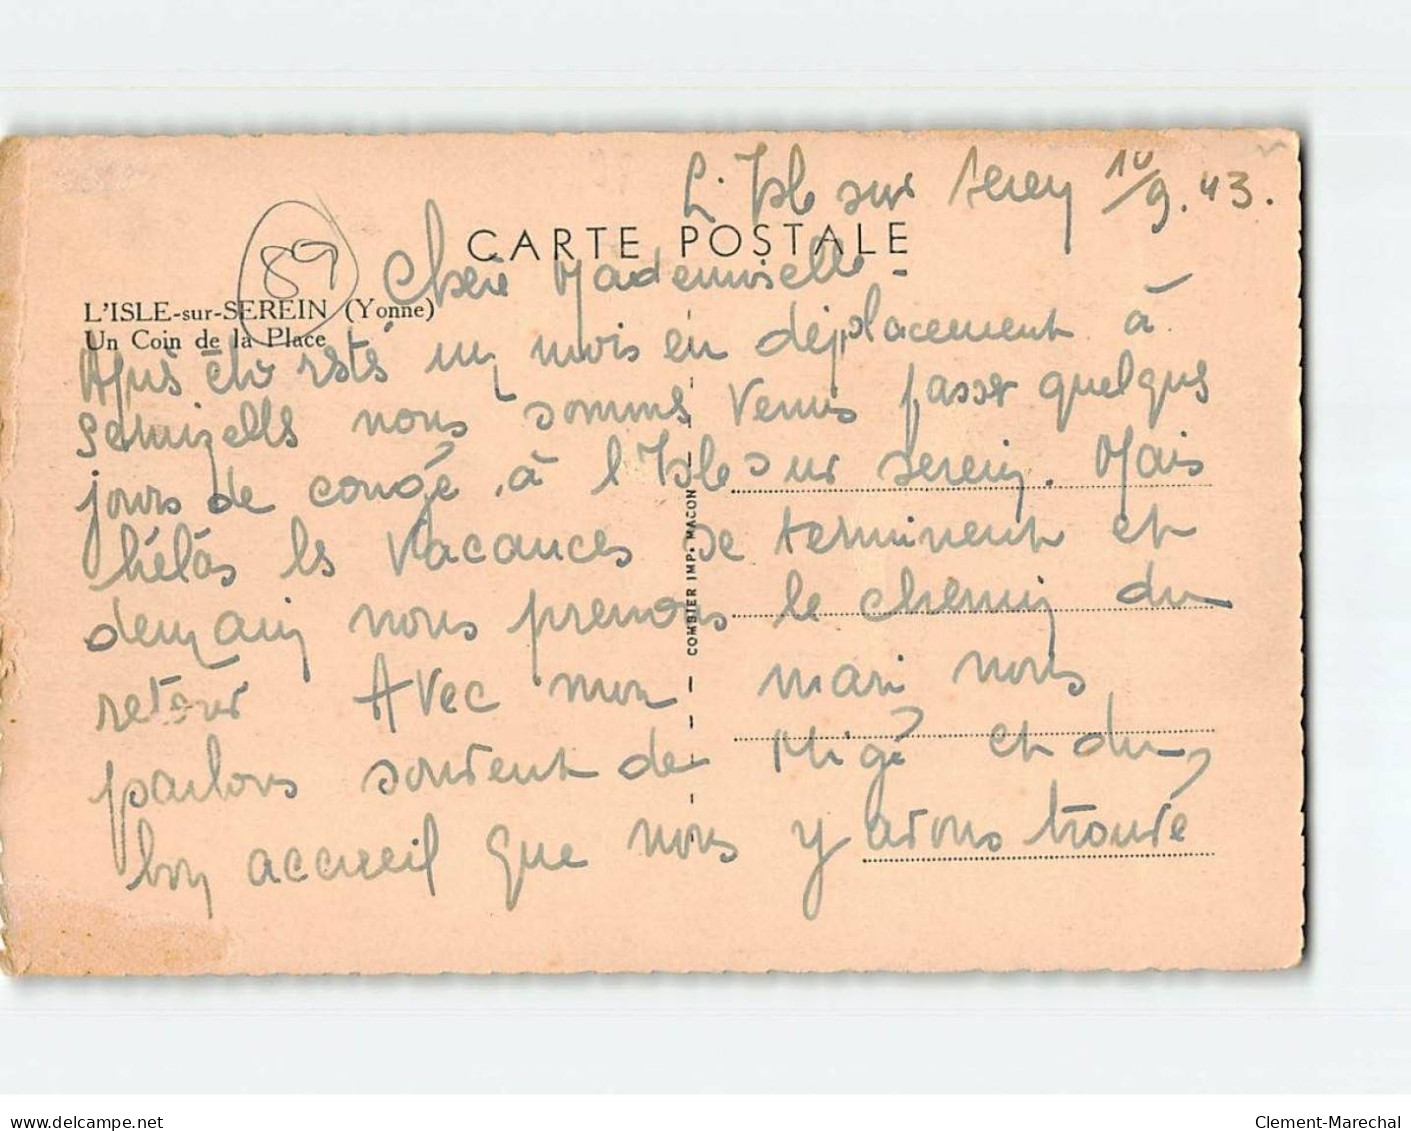 L'Isle sur Serein 10/9.43.
CARTE POSTALE
89
Chère Mademoiselle -
L'ISLE-sur-SEREIN (Yonne)
Un Coin de la Place
Après être resté un mois en déplacement à
Sermizelles nous sommes venus passer quelques
jours de congé, à l'Isle sur Serein. Mais
hélàs les vacances se terminent et
demain nous prenons le chemin du
retour Avec mon mari nous
parlons souvent de Migé et du
bon accueil que nous y avons trouvé
COMBIER IMP. MACON
www.delcampe.net
Clement-Marechal